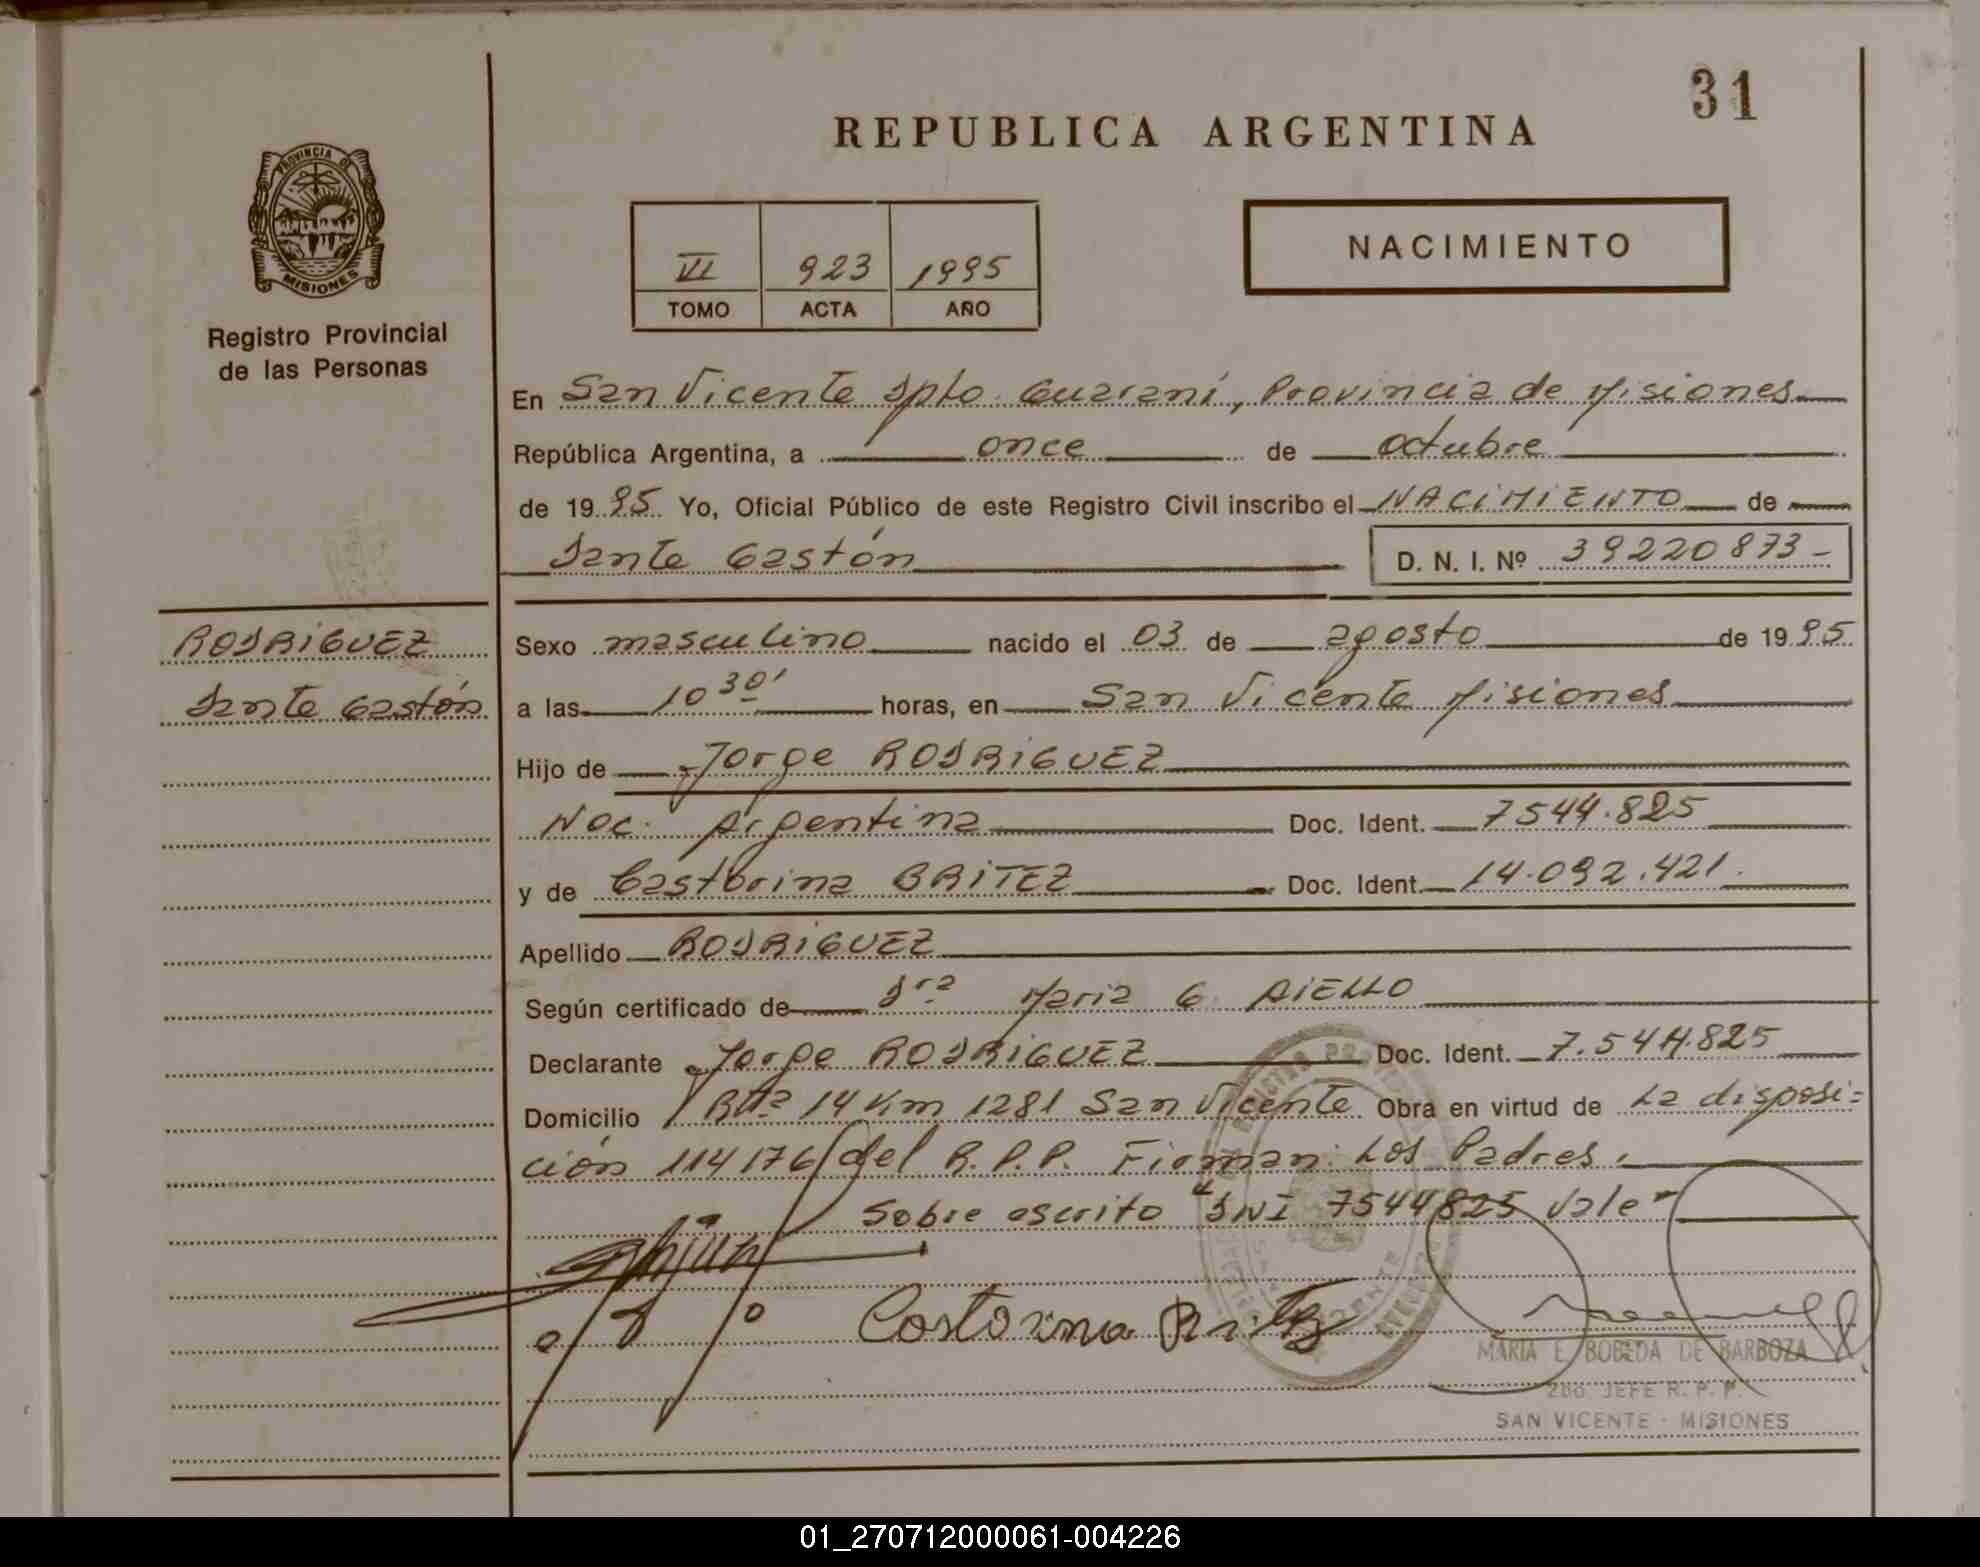 31
REPUBLICA ARGENTINA
PROVINCIA DE
MISIONES
Registro Provincial
de las Personas
VI 923 1995
TOMO ACTA AÑO
NACIMIENTO
En San Vicente Dpto. Guaraní, Provincia de Misiones
República Argentina, a once de octubre
de 1995 Yo, Oficial Público de este Registro Civil inscribo el NACIMIENTO de
Dante Gastón D. N. I. Nº 39220873-
RODRIGUEZ
Dante Gastón
Sexo masculino nacido el 03 de agosto de 1995
a las 10 30' horas, en San Vicente Misiones
Hijo de Jorge RODRIGUEZ
Nac. Argentina Doc. Ident. 7544.825
y de Castorina BRITEZ Doc. Ident. 14.092.421.
Apellido RODRIGUEZ
Según certificado de Dra Maria G. AIELLO
Declarante Jorge RODRIGUEZ Doc. Ident. 7.544.825
Domicilio Ruta 14 Km 1281 San Vicente Obra en virtud de La disposi=
ción 114176/ del R.P.P. Firman: Los Padres.
Sobre escrito "DNI 7544825 Vale"
Castorina Britez
MARIA E. BOBEDA DE BARBOZA
2do. JEFE R. P. P.
SAN VICENTE - MISIONES
01_270712000061-004226